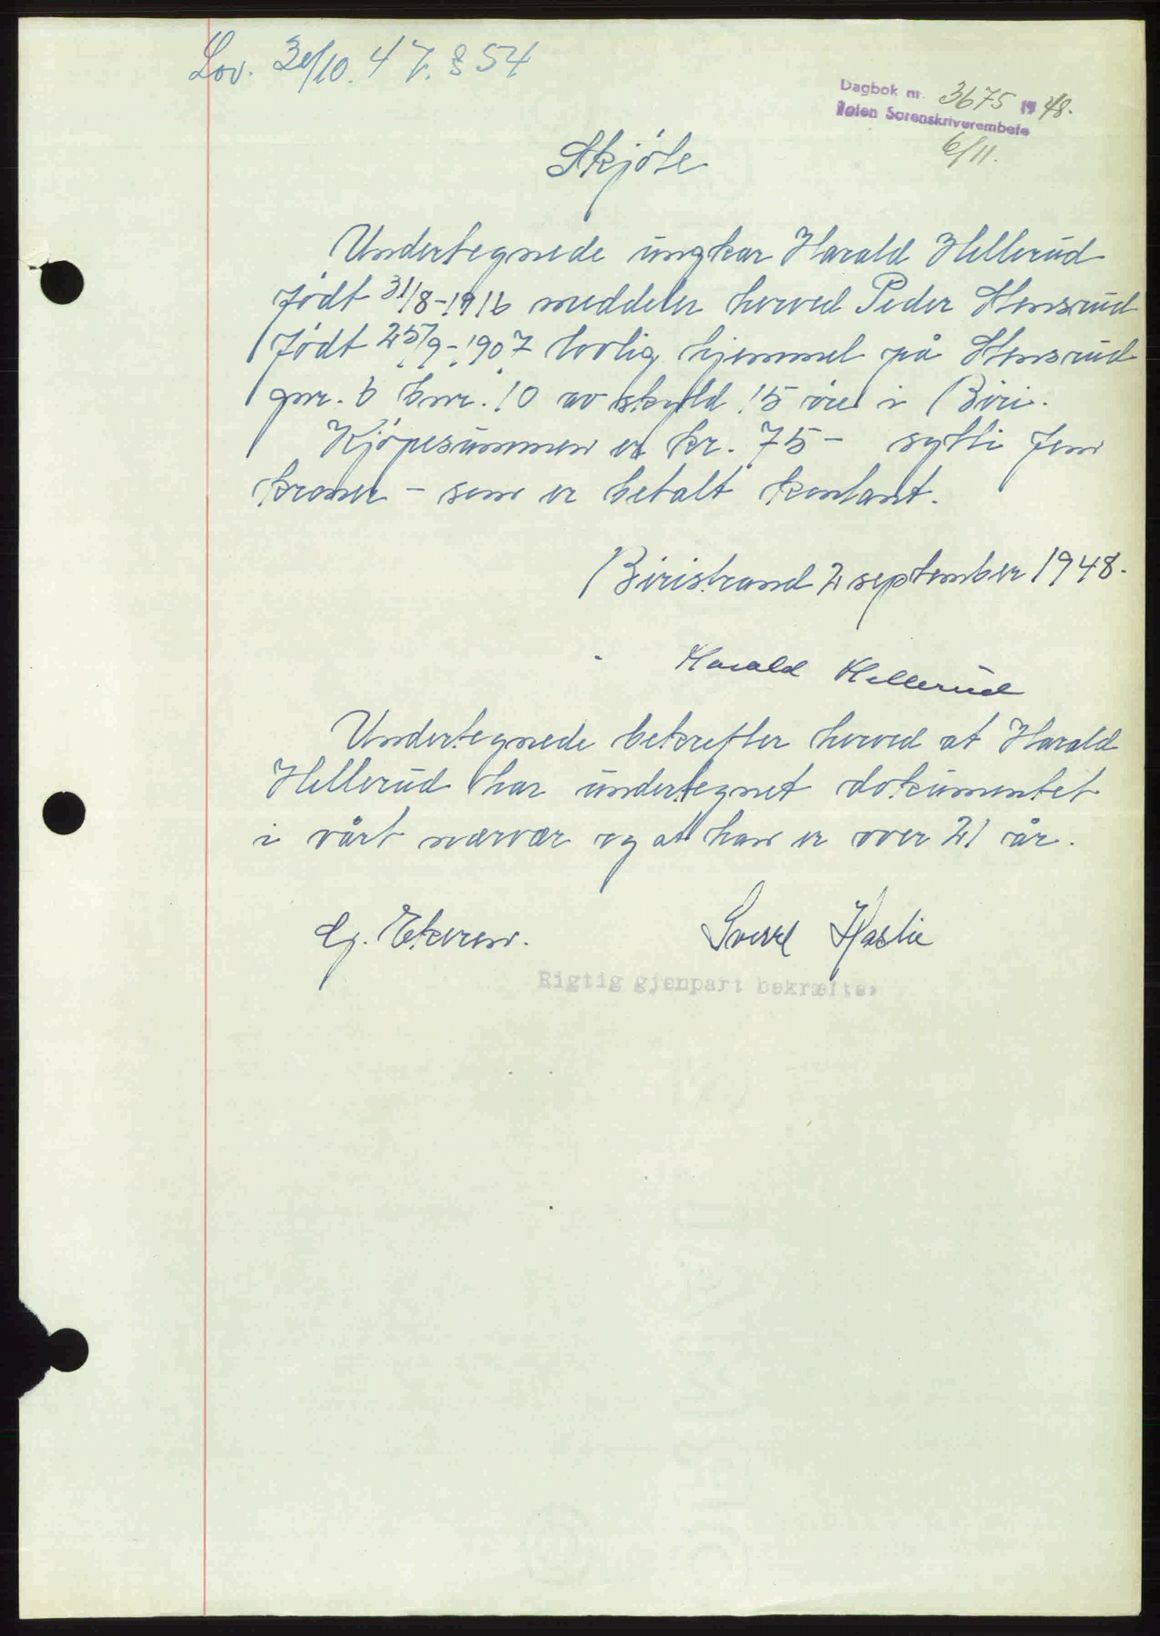 Lov. 30/10. 47. § 54
Dagbok nr. 3675 19 48.
Toten Sorenskriverembete
6/11.
Skjöte
Undertegnede ungkar Harald Hellerud
födt 31/8-1916 meddeler herved Peder Hensrud
födt 25/9-1907 lovlig hjemmel på Hensrud
gnr. 6 bnr. 10 av skyld 15 öre i Biri.
Kjöpesummen er kr. 75 - sytti fem
kroner - som er betalt kontant.
Biristrand 2 september 1948.
Harald Hellerud
Undertegnede bekrefter herved at Harald
Hellerud har undertegnet dokumentet
i vårt nærvær og at han er over 21 år.
Ekeren. Sverre Haslie
Rigtig gjenpart bekræftes